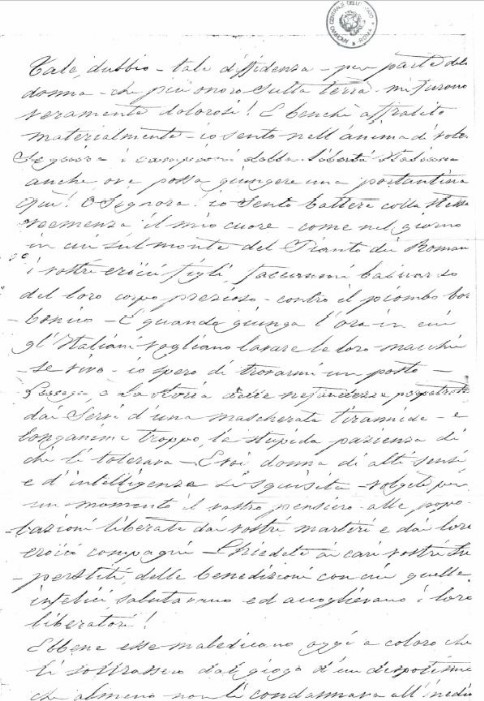 ARCHIVIO CENTRALE DELLO STATO
Tale dubbio – tale diffidenza – per parte della
donna – che più onoro sulla terra – mi furono
veramente dolorosi! E benchè affralito
materialmente – io sento nell'anima di voler
seguire i campioni della libertà Italiana
anche ove possa giungere una portantina
Qui! O Signora! io sento battere colla stessa
veemenza il mio cuore – come nel giorno
in cui sul monte del Pianto dei Romani
i vostri eroici figli, faceanmi baluardo
del loro corpo prezioso – contro il piombo bor
bonico – E quando giunga l'ora in cui
gl'Italiani vogliano lavare le loro macchie
– se vivo – io spero di trovarmi un posto –
la storia delle nefandezze perpetrate
dai servi d'una mascherata tirannide – e
longanime troppo, la stupida pazienza di
chi li tolerava – E voi donna di alti sensi
e d'intelligenza squisita – volgete per
un momento il vostro pensiero alle popo
lazioni liberate dai vostri martiri e dai loro
eroici compagni – Chiedete ai cari vostri su
perstiti, delle benedizioni con cui quelle
infelici, salutavano ed accoglievano i loro
liberatori!
Ebbene esse maledicono oggi a coloro che
li sottrassero dal giogo d'un despotismo
che almeno non li condannava all'inedia